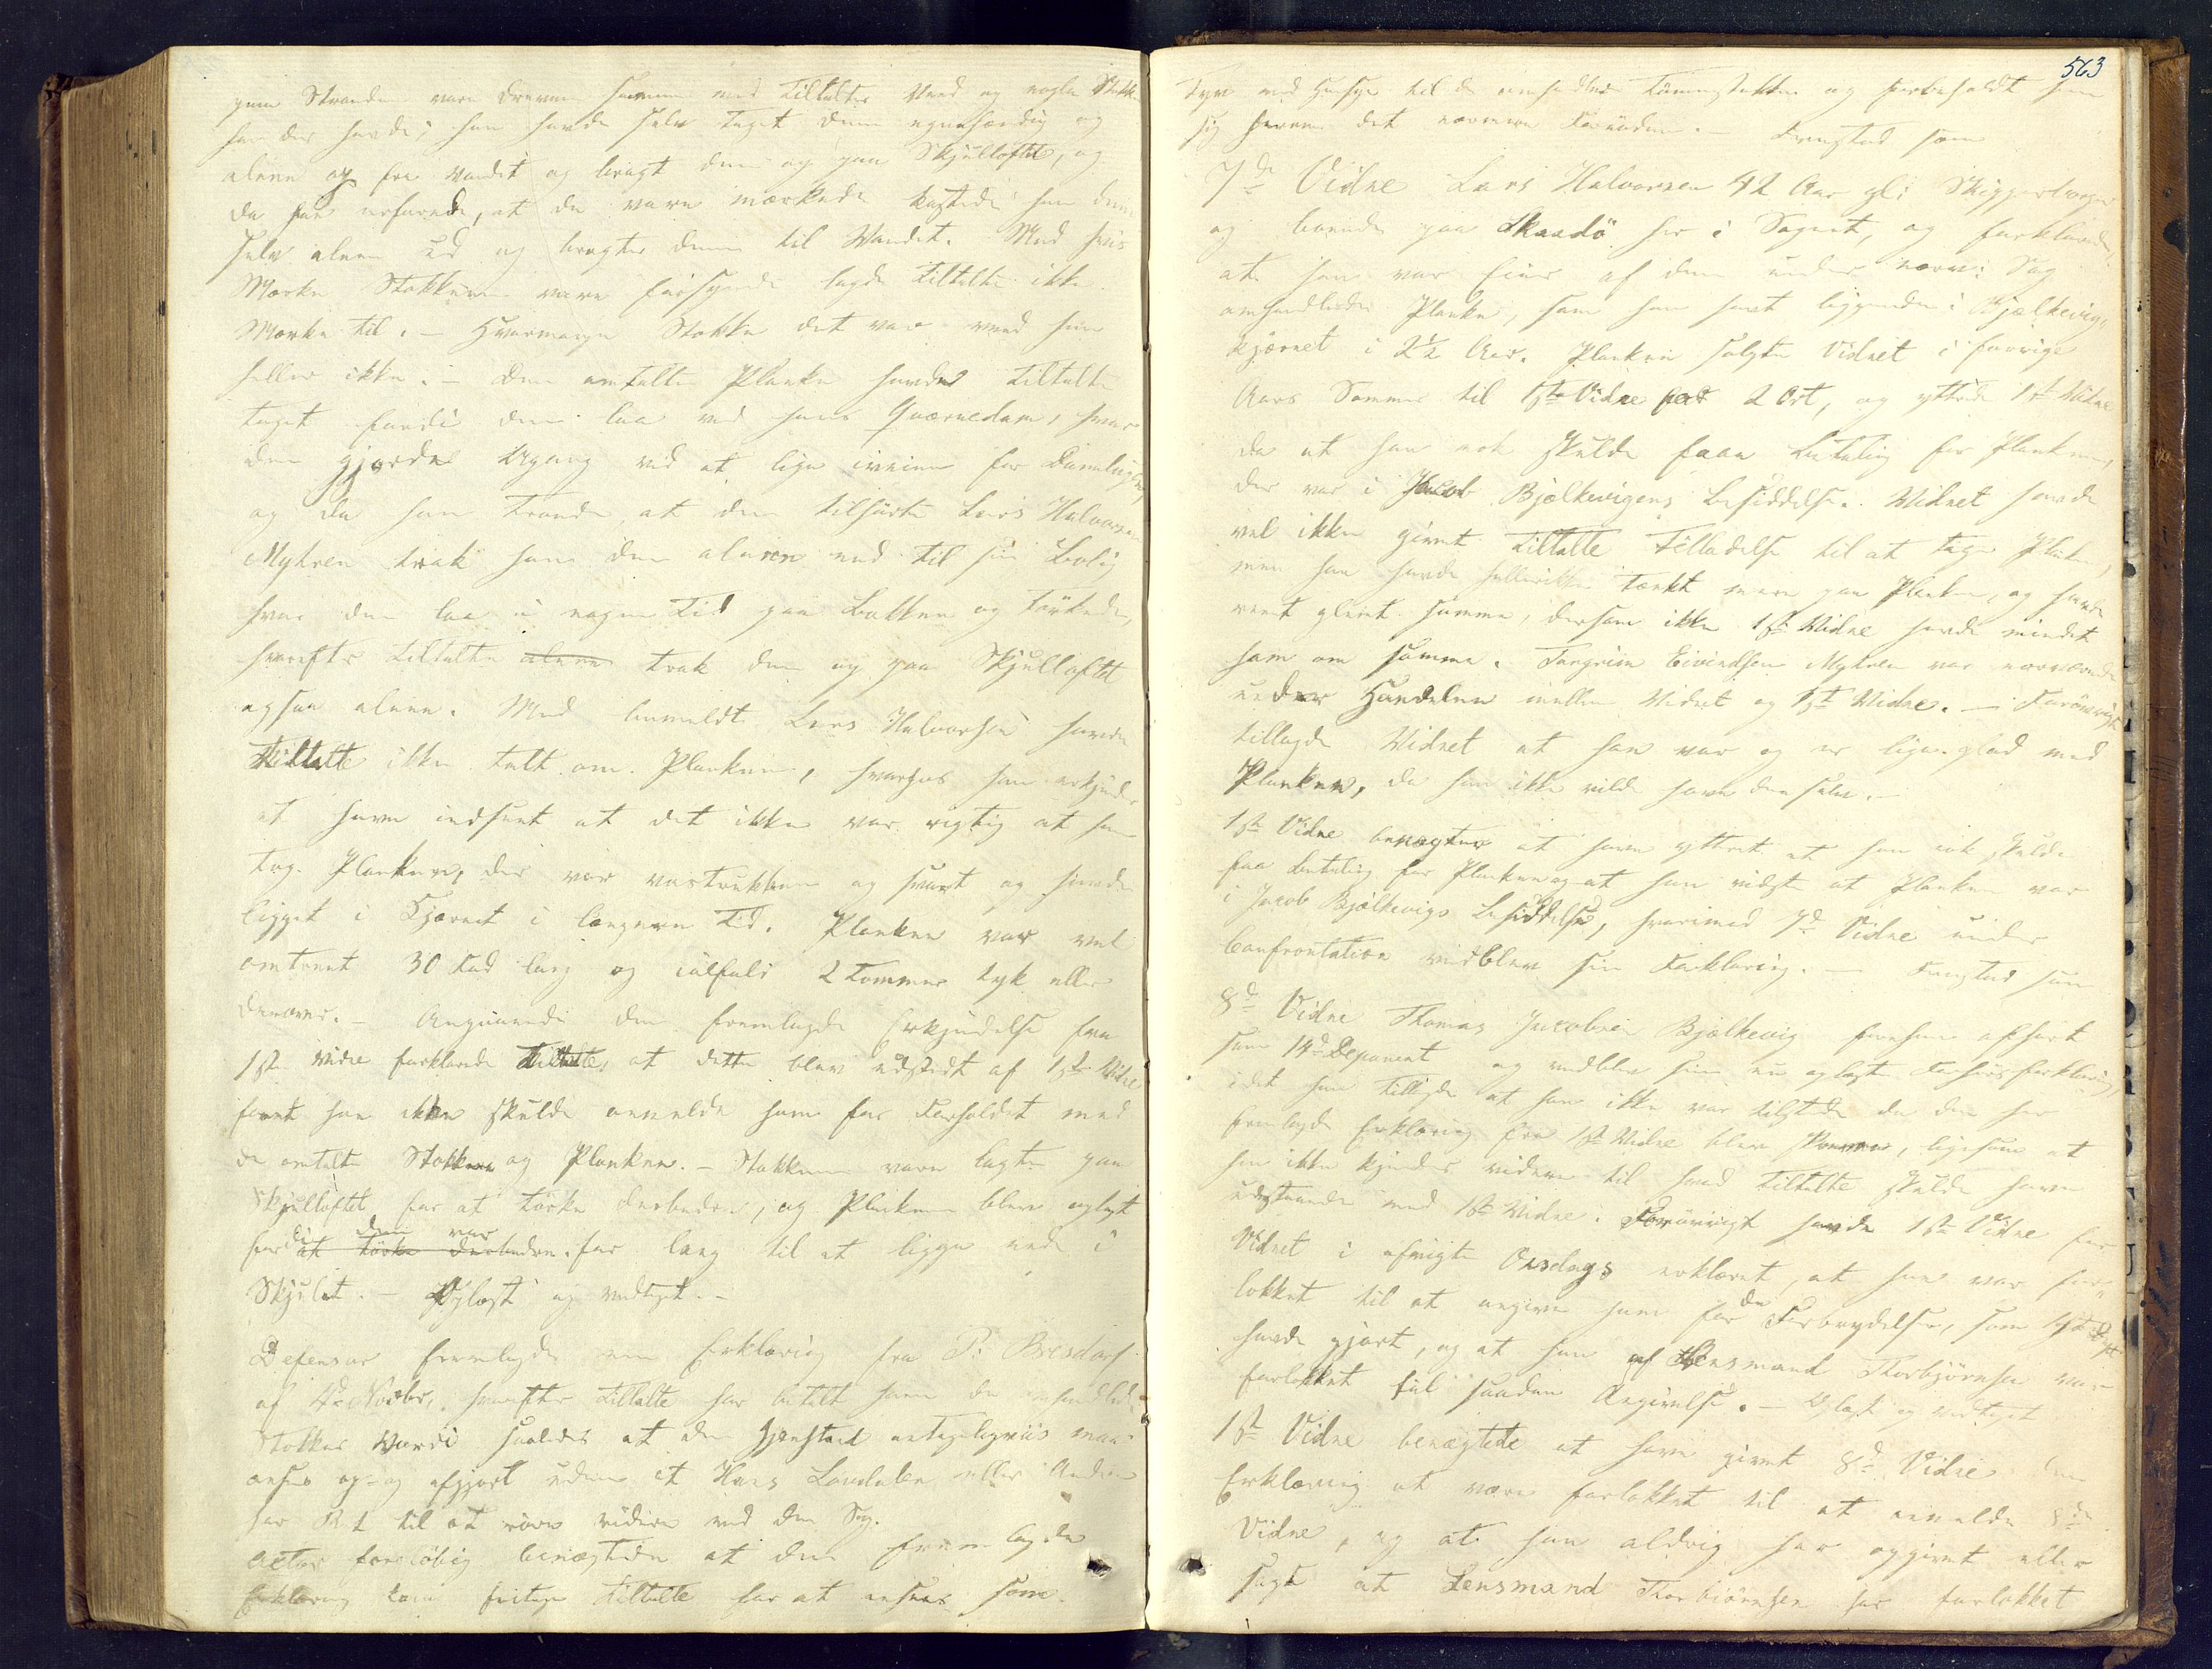 paa Stranden vare drevne sammen med Tiltaltes Ved og nogle Stokke
han der havde; han havde selv taget dem egenhændig og
alene op fra Vandet og bragt dem op paa Skjulloftet, og
da han erfarede, at de vare mærkede kastede han dem
selv alene ud og bragte dem til Vandet. Med hvis
Mærke Stokkene vare forsynede lagde Tiltalte ikke
Mærke til. – Hvormange Stokke det var veed han
heller ikke. – Den omtalte Planke havde Tiltalte
taget fordi den laa ved hans Qværnedam, hvor
den gjorde Ugang ved at ligge iveien for Damlugen,
og da han troede, at den tilhørte Lars Halvorsen
Myhren trak han den alene ned til sin Bolig
hvor den laa i nogen Tid paa Bakken og tørkede,
hvorefter Tiltalte alene trak den op paa Skjulloftet
ogsaa alene. Med bemeldte Lars Halvorsen havde
Tiltalte ikke talt om Planken, hvorhos han erkjender
at have indseet at det ikke var rigtig at han
tog Planken, der var vastrukken og svart og havde
ligget i Kjærnet i længere Tid. Planken var vel
omtrent 30 Fod lang og ialfald 2 Tommer tyk eller
derover. – Angaaende den fremlagde Erkjendelse fra
1ste Vidne forklarede Tiltalte, at dette blev udstedt af 1ste Vidne
forat han ikke skulde anmelde ham for Forholdet med
de omtalte Stokkene og Planken. – Stokkene vare lagte paa
Skjulloftet for at tørke derbedre, og Planken blev oplagt
fordi den var
at tørke derbedre. for lang til at ligge nede i
Skjulet. – Oplæst og vedtaget. –
Defensor fremlagde en Erklæring fra P: Bresdorf
af 4de Novbr, hvorefter Tiltalte har betalt ham de omhandlede
Stokkes Værdi saaledes at den Gjenstand antageligviis maa
ansees op- og afgjort uden at Hans Lovdalen eller Andre
har Ret til at røre videre ved den Sag.
Actor foreløbig benægtede at den fremlagde
Erklæring kan fritage Tiltalte for at ansees som
563
Tyv med Hensyn til de omhandlede Tømmerstokke og forbeholdt han
sig herom det nærmere Fornødne. Fremstod som
7de Vidne Lars Halvorsen 42 Aar gl:
og boende paa Skaadö her i Sognet, og forklarede,
at han var Eier af den under nærv: Sag
omhandlede Planke, som han havt liggende i Bjælkevig-
kjærnet i 2½ Aar. Planken solgte Vidnet i forrige
Aars Sommer til 1ste Vidne for 2 Ort, og yttrede 1ste Vidne
da at han nok skulde faae Betaling for Planken,
der var i Jacob Bjælkevigens Besiddelse. Vidnet havde
vel ikke givet Tiltalte Tilladelse til at tage Planken,
men han havde hellerikke tænkt mere paa Planken, og havde
reent glemt samme, dersom ikke 1ste Vidne havde mindet
ham om samme. Torgrim Eivindsen Myhren var nærværende
under Handelen mellem Vidnet og 1ste Vidne. – Forøvrigt
tillagde Vidnet at han var og er lige glad med
Planken, da han ikke vilde have den selv. –
1ste Vidne benægter at have yttret at han nok skulde
faa Betaling for Planken og at han vidste at Planken var
i Jacob Bjælkevigs Besiddelse, hvorimod 7de Vidne under
Confrontation vedblev sin Forklaring. – Fremstod som
8de Vidne Thomas Jacobsen Bjælkevig forhen afhørt
som 14de Deponent og vedblev sin nu oplæste Forhørsforklaring,
idet han tilføjede at han ikke var tilstede da den her
fremlagde Erklæring fra 1ste Vidne blev skreven, ligesom at
han ikke kjender videre til hvad Tiltalte skulde have
udestaaende med 1ste Vidne. Forøvrigt havde 1ste Vidne for
Vidnet i afvigte Onsdags erklæret, at han var for-
lokket til at angive ham for den Forbrydelse, som
havde gjort, og at han af Lensmand Thorbjörnsen var
forlokket til saadan Angivelse. – Oplæst og vedtaget
1ste Vidne benægtede at have givet 8de Vidne den
Erklæring at være forlokket til at anmelde 8de
Vidne, og at han aldrig har opgivet eller
sagt at Lensmand Thorbiörnsen har forlokket